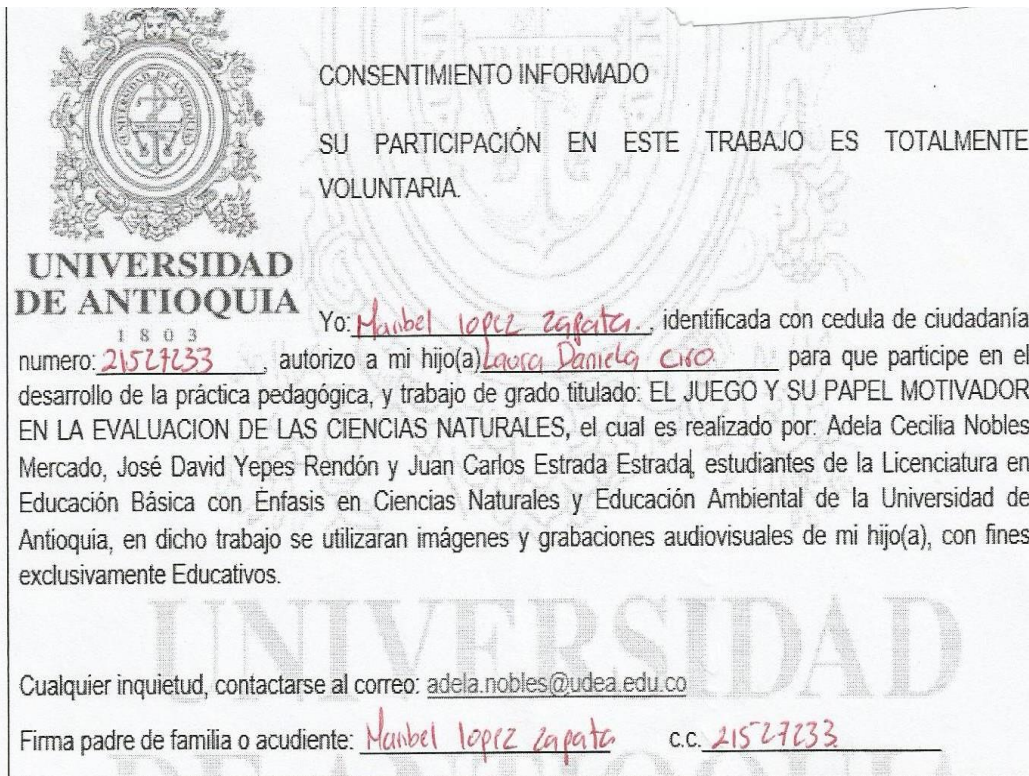 CONSENTIMIENTO INFORMADO
SU PARTICIPACIÓN EN ESTE TRABAJO ES TOTALMENTE
VOLUNTARIA.
UNIVERSIDAD
DE ANTIOQUIA
1803
Yo: Maribel lopez zapata. , identificada con cedula de ciudadanía
numero: 21527233 , autorizo a mi hijo(a) Laura Daniela Ciro. para que participe en el
desarrollo de la práctica pedagógica, y trabajo de grado titulado: EL JUEGO Y SU PAPEL MOTIVADOR
EN LA EVALUACION DE LAS CIENCIAS NATURALES, el cual es realizado por: Adela Cecilia Nobles
Mercado, José David Yepes Rendón y Juan Carlos Estrada Estrada, estudiantes de la Licenciatura en
Educación Básica con Énfasis en Ciencias Naturales y Educación Ambiental de la Universidad de
Antioquia, en dicho trabajo se utilizaran imágenes y grabaciones audiovisuales de mi hijo(a), con fines
exclusivamente Educativos.
UNIVERSIDAD
Cualquier inquietud, contactarse al correo: adela.nobles@udea.edu.co
Firma padre de familia o acudiente: Maribel lopez zapata c.c. 21527233
DE ANTIOQUIA